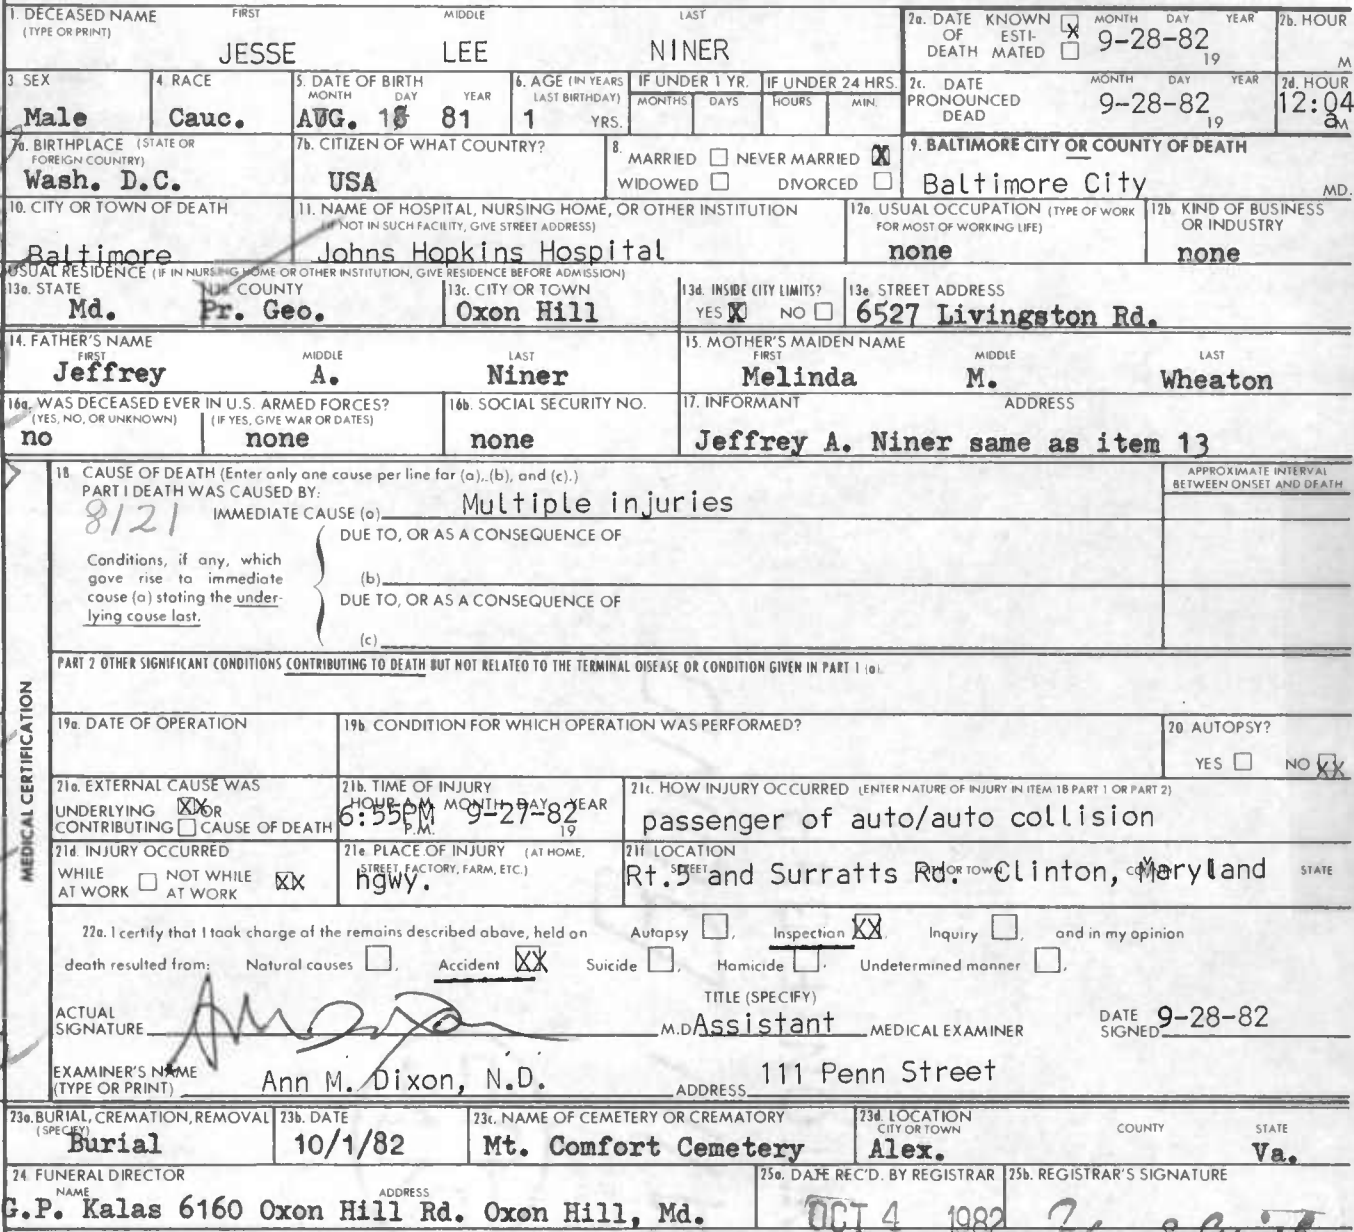 1. DECEASED NAME (TYPE OR PRINT) FIRST MIDDLE LAST
JESSE LEE NINER
2a. DATE OF DEATH KNOWN ☒ ESTIMATED ☐ MONTH DAY YEAR 9-28-82 19
2b. HOUR M
3 SEX Male
4. RACE Cauc.
5. DATE OF BIRTH MONTH DAY YEAR AUG. 81
6. AGE (IN YEARS LAST BIRTHDAY) 1 YRS.
IF UNDER 1 YR. MONTHS DAYS
IF UNDER 24 HRS. HOURS MIN.
2c. DATE PRONOUNCED DEAD MONTH DAY YEAR 9-28-82 19
2d. HOUR 12:04 a M
7a. BIRTHPLACE (STATE OR FOREIGN COUNTRY) Wash. D.C.
7b. CITIZEN OF WHAT COUNTRY? USA
8. MARRIED ☐ NEVER MARRIED ☒ WIDOWED ☐ DIVORCED ☐
9. BALTIMORE CITY OR COUNTY OF DEATH Baltimore City MD.
10. CITY OR TOWN OF DEATH Baltimore
11. NAME OF HOSPITAL, NURSING HOME, OR OTHER INSTITUTION (IF NOT IN SUCH FACILITY, GIVE STREET ADDRESS) Johns Hopkins Hospital
12a. USUAL OCCUPATION (TYPE OF WORK FOR MOST OF WORKING LIFE) none
12b. KIND OF BUSINESS OR INDUSTRY none
USUAL RESIDENCE (IF IN NURSING HOME OR OTHER INSTITUTION, GIVE RESIDENCE BEFORE ADMISSION)
13a. STATE Md.
COUNTY Pr. Geo.
13c. CITY OR TOWN Oxon Hill
13d. INSIDE CITY LIMITS? YES ☒ NO ☐
13e. STREET ADDRESS 6527 Livingston Rd.
14. FATHER'S NAME FIRST MIDDLE LAST Jeffrey A. Niner
15. MOTHER'S MAIDEN NAME FIRST MIDDLE LAST Melinda M. Wheaton
16a. WAS DECEASED EVER IN U.S. ARMED FORCES? (YES, NO, OR UNKNOWN) no (IF YES, GIVE WAR OR DATES) none
16b. SOCIAL SECURITY NO. none
17. INFORMANT ADDRESS Jeffrey A. Niner same as item 13
MEDICAL CERTIFICATION
18. CAUSE OF DEATH (Enter only one cause per line for (a), (b), and (c).)
APPROXIMATE INTERVAL BETWEEN ONSET AND DEATH
PART I DEATH WAS CAUSED BY:
8121 IMMEDIATE CAUSE (a) Multiple injuries
DUE TO, OR AS A CONSEQUENCE OF
Conditions, if any, which gave rise to immediate cause (a) stating the underlying cause last.
(b)
DUE TO, OR AS A CONSEQUENCE OF
(c)
PART 2 OTHER SIGNIFICANT CONDITIONS CONTRIBUTING TO DEATH BUT NOT RELATED TO THE TERMINAL DISEASE OR CONDITION GIVEN IN PART 1 (a).
19a. DATE OF OPERATION
19b. CONDITION FOR WHICH OPERATION WAS PERFORMED?
20 AUTOPSY? YES ☐ NO XX
21a. EXTERNAL CAUSE WAS UNDERLYING XX OR CONTRIBUTING ☐ CAUSE OF DEATH
21b. TIME OF INJURY HOUR A.M. MONTH DAY YEAR P.M. 19 6:55PM 9-27-82
21c. HOW INJURY OCCURRED (ENTER NATURE OF INJURY IN ITEM 18 PART 1 OR PART 2) passenger of auto/auto collision
21d. INJURY OCCURRED WHILE AT WORK ☐ NOT WHILE AT WORK XX
21e. PLACE OF INJURY (AT HOME, STREET, FACTORY, FARM, ETC.) hgwy.
21f LOCATION STREET CITY OR TOWN COUNTY STATE Rt.5 and Surratts Rd. Clinton, Maryland
22a. I certify that I took charge of the remains described above, held on Autopsy ☐, Inspection XX, Inquiry ☐, and in my opinion
death resulted from: Natural causes ☐, Accident XX Suicide ☐, Homicide ☐, Undetermined manner ☐,
ACTUAL SIGNATURE M.D. TITLE (SPECIFY) Assistant MEDICAL EXAMINER DATE SIGNED 9-28-82
EXAMINER'S NAME (TYPE OR PRINT) Ann M. Dixon, N.D. ADDRESS 111 Penn Street
23a. BURIAL, CREMATION, REMOVAL (SPECIFY) Burial
23b. DATE 10/1/82
23c. NAME OF CEMETERY OR CREMATORY Mt. Comfort Cemetery
23d. LOCATION CITY OR TOWN COUNTY STATE Alex. Va.
24. FUNERAL DIRECTOR NAME ADDRESS
G.P. Kalas 6160 Oxon Hill Rd. Oxon Hill, Md.
25a. DATE REC'D. BY REGISTRAR OCT 4 1982
25b. REGISTRAR'S SIGNATURE